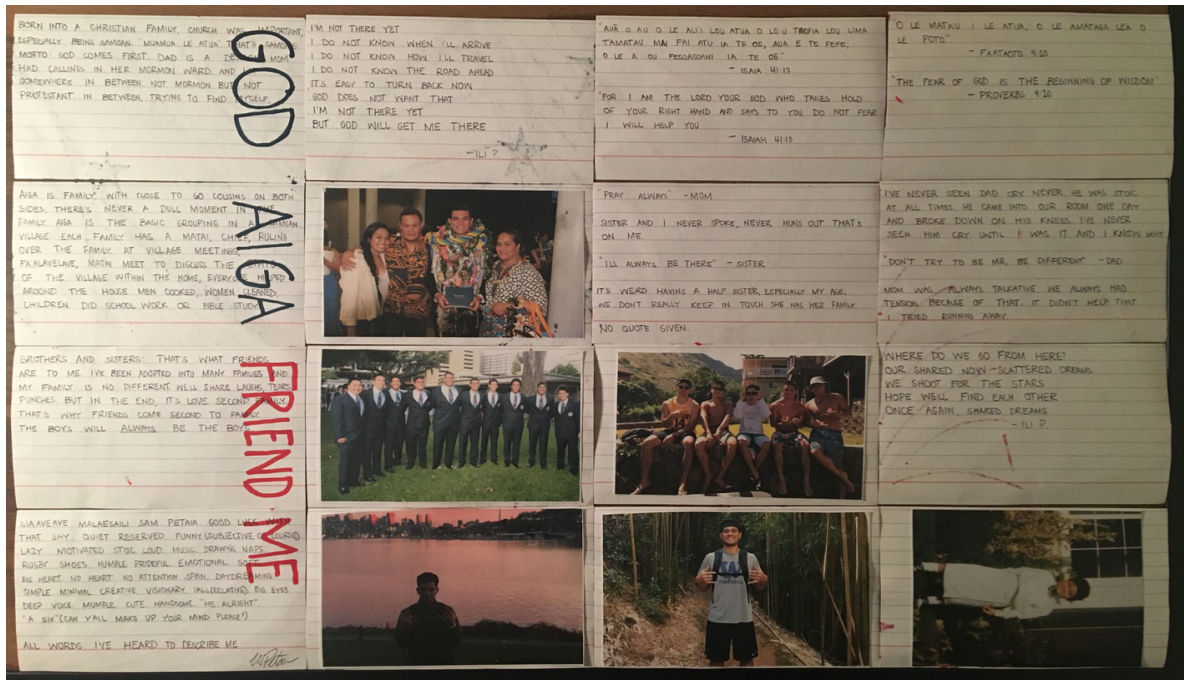 BORN INTO A CHRISTIAN FAMILY, CHURCH WAS IMPORTANT,
ESPECIALLY BEING SAMOAN. "MUAMUA LE ATUA" THAT'S SAMOAS
MOTTO: GOD COMES FIRST. DAD IS A MOM
HAD CALLINGS IN HER MORMON WARD, AND
SOMEWHERE IN BETWEEN. NOT MORMON BUT NOT
PROTESTANT IN BETWEEN, TRYING TO FIND MYSELF.
GOD
I'M NOT THERE YET
I DO NOT KNOW WHEN I'LL ARRIVE
I DO NOT KNOW HOW I'LL TRAVEL
I DO NOT KNOW THE ROAD AHEAD
ITS EASY TO TURN BACK NOW
GOD DOES NOT WANT THAT
I'M NOT THERE YET
BUT GOD WILL GET ME THERE
-ILI P
"AUĀ O AU O LE ALI'I LOU ATUA O LOU TAOFIA LOU LIMA
TAMATAU MAI FAI ATU IA TE OE, AUA E TE FEFE,
O LE A OU FESOASOANI IA TE OE"
- ISAIA 41:13
"FOR I AM THE LORD YOUR GOD WHO TAKES HOLD
OF YOUR RIGHT HAND AND SAYS TO YOU, DO NOT FEAR
I WILL HELP YOU
- ISAIAH 41:13
O LE MATA'U I LE ATUA, O LE AMATAGA LEA O
LE POTO"
- FAATAOTO 9:10
"THE FEAR OF GOD IS THE BEGINNING OF WISDOM"
- PROVERBS 9:10
AIGA IS FAMILY. WITH CLOSE TO 60 COUSINS ON BOTH
SIDES, THERE'S NEVER A DULL MOMENT IN THE
FAMILY. AIGA IS THE BASIC GROUPING IN A SAMOAN
VILLAGE EACH FAMILY HAS A MATAI, CHIEF, RULING
OVER THE FAMILY. AT VILLAGE MEETINGS,
FA'ALAVELAVE, MATAI MEET TO DISCUSS THE
OF THE VILLAGE WITHIN THE HOME, EVERYONE HELPED
AROUND THE HOUSE MEN COOKED, WOMEN CLEANED,
CHILDREN DID SCHOOL WORK OR BIBLE STUDY
AIGA
"PRAY ALWAYS" -MOM
SISTER AND I NEVER SPOKE, NEVER HUNG OUT THAT'S
ON ME.
"I'LL ALWAYS BE THERE" - SISTER
ITS WEIRD HAVING A HALF SISTER, ESPECIALLY MY AGE.
WE DON'T REALLY KEEP IN TOUCH. SHE HAS HER FAMILY
NO QUOTE GIVEN.
I'VE NEVER SEEN DAD CRY. NEVER. HE WAS STOIC
AT ALL TIMES. HE CAME INTO OUR ROOM ONE DAY
AND BROKE DOWN ON HIS KNEES. I'VE NEVER
SEEN HIM CRY UNTIL I WAS 17 AND I KNOW WHY
"DON'T TRY TO BE ME, BE DIFFERENT" -DAD
MOM WAS ALWAYS TALKATIVE WE ALWAYS HAD
TENSION BECAUSE OF THAT. IT DIDN'T HELP THAT
I TRIED RUNNING AWAY
BROTHERS AND SISTERS: THAT'S WHAT FRIENDS
ARE TO ME. I'VE BEEN ADOPTED INTO MANY FAMILIES AND
MY FAMILY IS NO DIFFERENT WE'LL SHARE LAUGHS, TEARS
PUNCHES. BUT IN THE END, IT'S LOVE SECOND FAMILY.
THAT'S WHY FRIENDS COME SECOND TO FAMILY
THE BOYS WILL ALWAYS BE THE BOYS
FRIEND
WHERE DO WE GO FROM HERE?
OUR SHARED NOW - SCATTERED DREAMS
WE SHOOT FOR THE STARS
HOPE WE'LL FIND EACH OTHER
ONCE AGAIN, SHARED DREAMS
- ILI P
MAAVEAVE MALAESAILI SAM PETAIA GOOD LUCK WITH
THAT SHY QUIET RESERVED FUNNY (SUBJECTIVE OF COURSE)
LAZY MOTIVATED STOIC LOUD. MUSIC DRAWING NAPS
RUGBY. SHOES. HUMBLE PRIDEFUL EMOTIONAL. SOFT
BIG HEART. NO HEART. NO ATTENTION SPAN. DAYDREAMING
SIMPLE MINIMAL CREATIVE VISIONARY. TALL (RELATIVE). BIG EYES
DEEP VOICE MUMBLE CUTE HANDSOME. "HE ALRIGHT"
"A SIX" (CAN Y'ALL MAKE UP YOUR MIND PLEASE?)
ALL WORDS I'VE HEARD TO DESCRIBE ME
ME